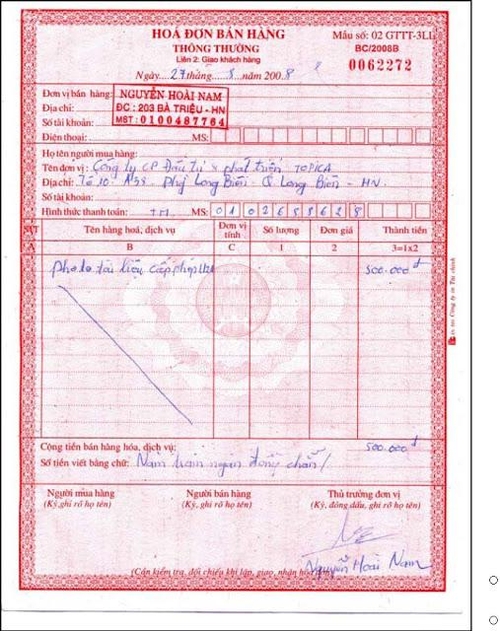 HOÁ ĐƠN BÁN HÀNG
THÔNG THƯỜNG
Liên 2: Giao khách hàng
Mẫu số: 02 GTTT-3LL
BC/2008B
0062272
Ngày...27 tháng...8...năm 2008
Đơn vị bán hàng: NGUYỄN HOÀI NAM
Địa chỉ: ĐC : 203 BÀ TRIỆU - HN
Số tài khoản: MST : 0100487764
Điện thoại: MS:
Họ tên người mua hàng:
Tên đơn vị: Công ty CP Đầu tư & phát triển TOPICA
Địa chỉ: Tổ 10 Long Biên - Q Long Biên - HN.
Số tài khoản:
Hình thức thanh toán: TM MS: 01 02658628
STT Tên hàng hoá, dịch vụ Đơn vị tính Số lượng Đơn giá Thành tiền
A B C 1 2 3=1x2
photo tài liệu cấp phép 500.000đ
Cộng tiền bán hàng hóa, dịch vụ: 500.000đ
Số tiền viết bằng chữ: Năm trăm ngàn đồng chẵn/
Người mua hàng Người bán hàng Thủ trưởng đơn vị
(Ký, ghi rõ họ tên) (Ký, ghi rõ họ tên) (Ký, đóng dấu, ghi rõ họ tên)
Nguyễn Hoài Nam
(Cần kiểm tra, đối chiếu khi lập, giao, nhận